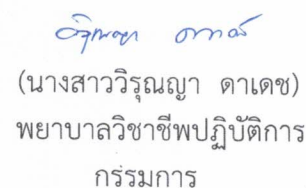 (นางสาววิรุณญา ดาเดช)
พยาบาลวิชาชีพปฏิบัติการ
กรรมการ